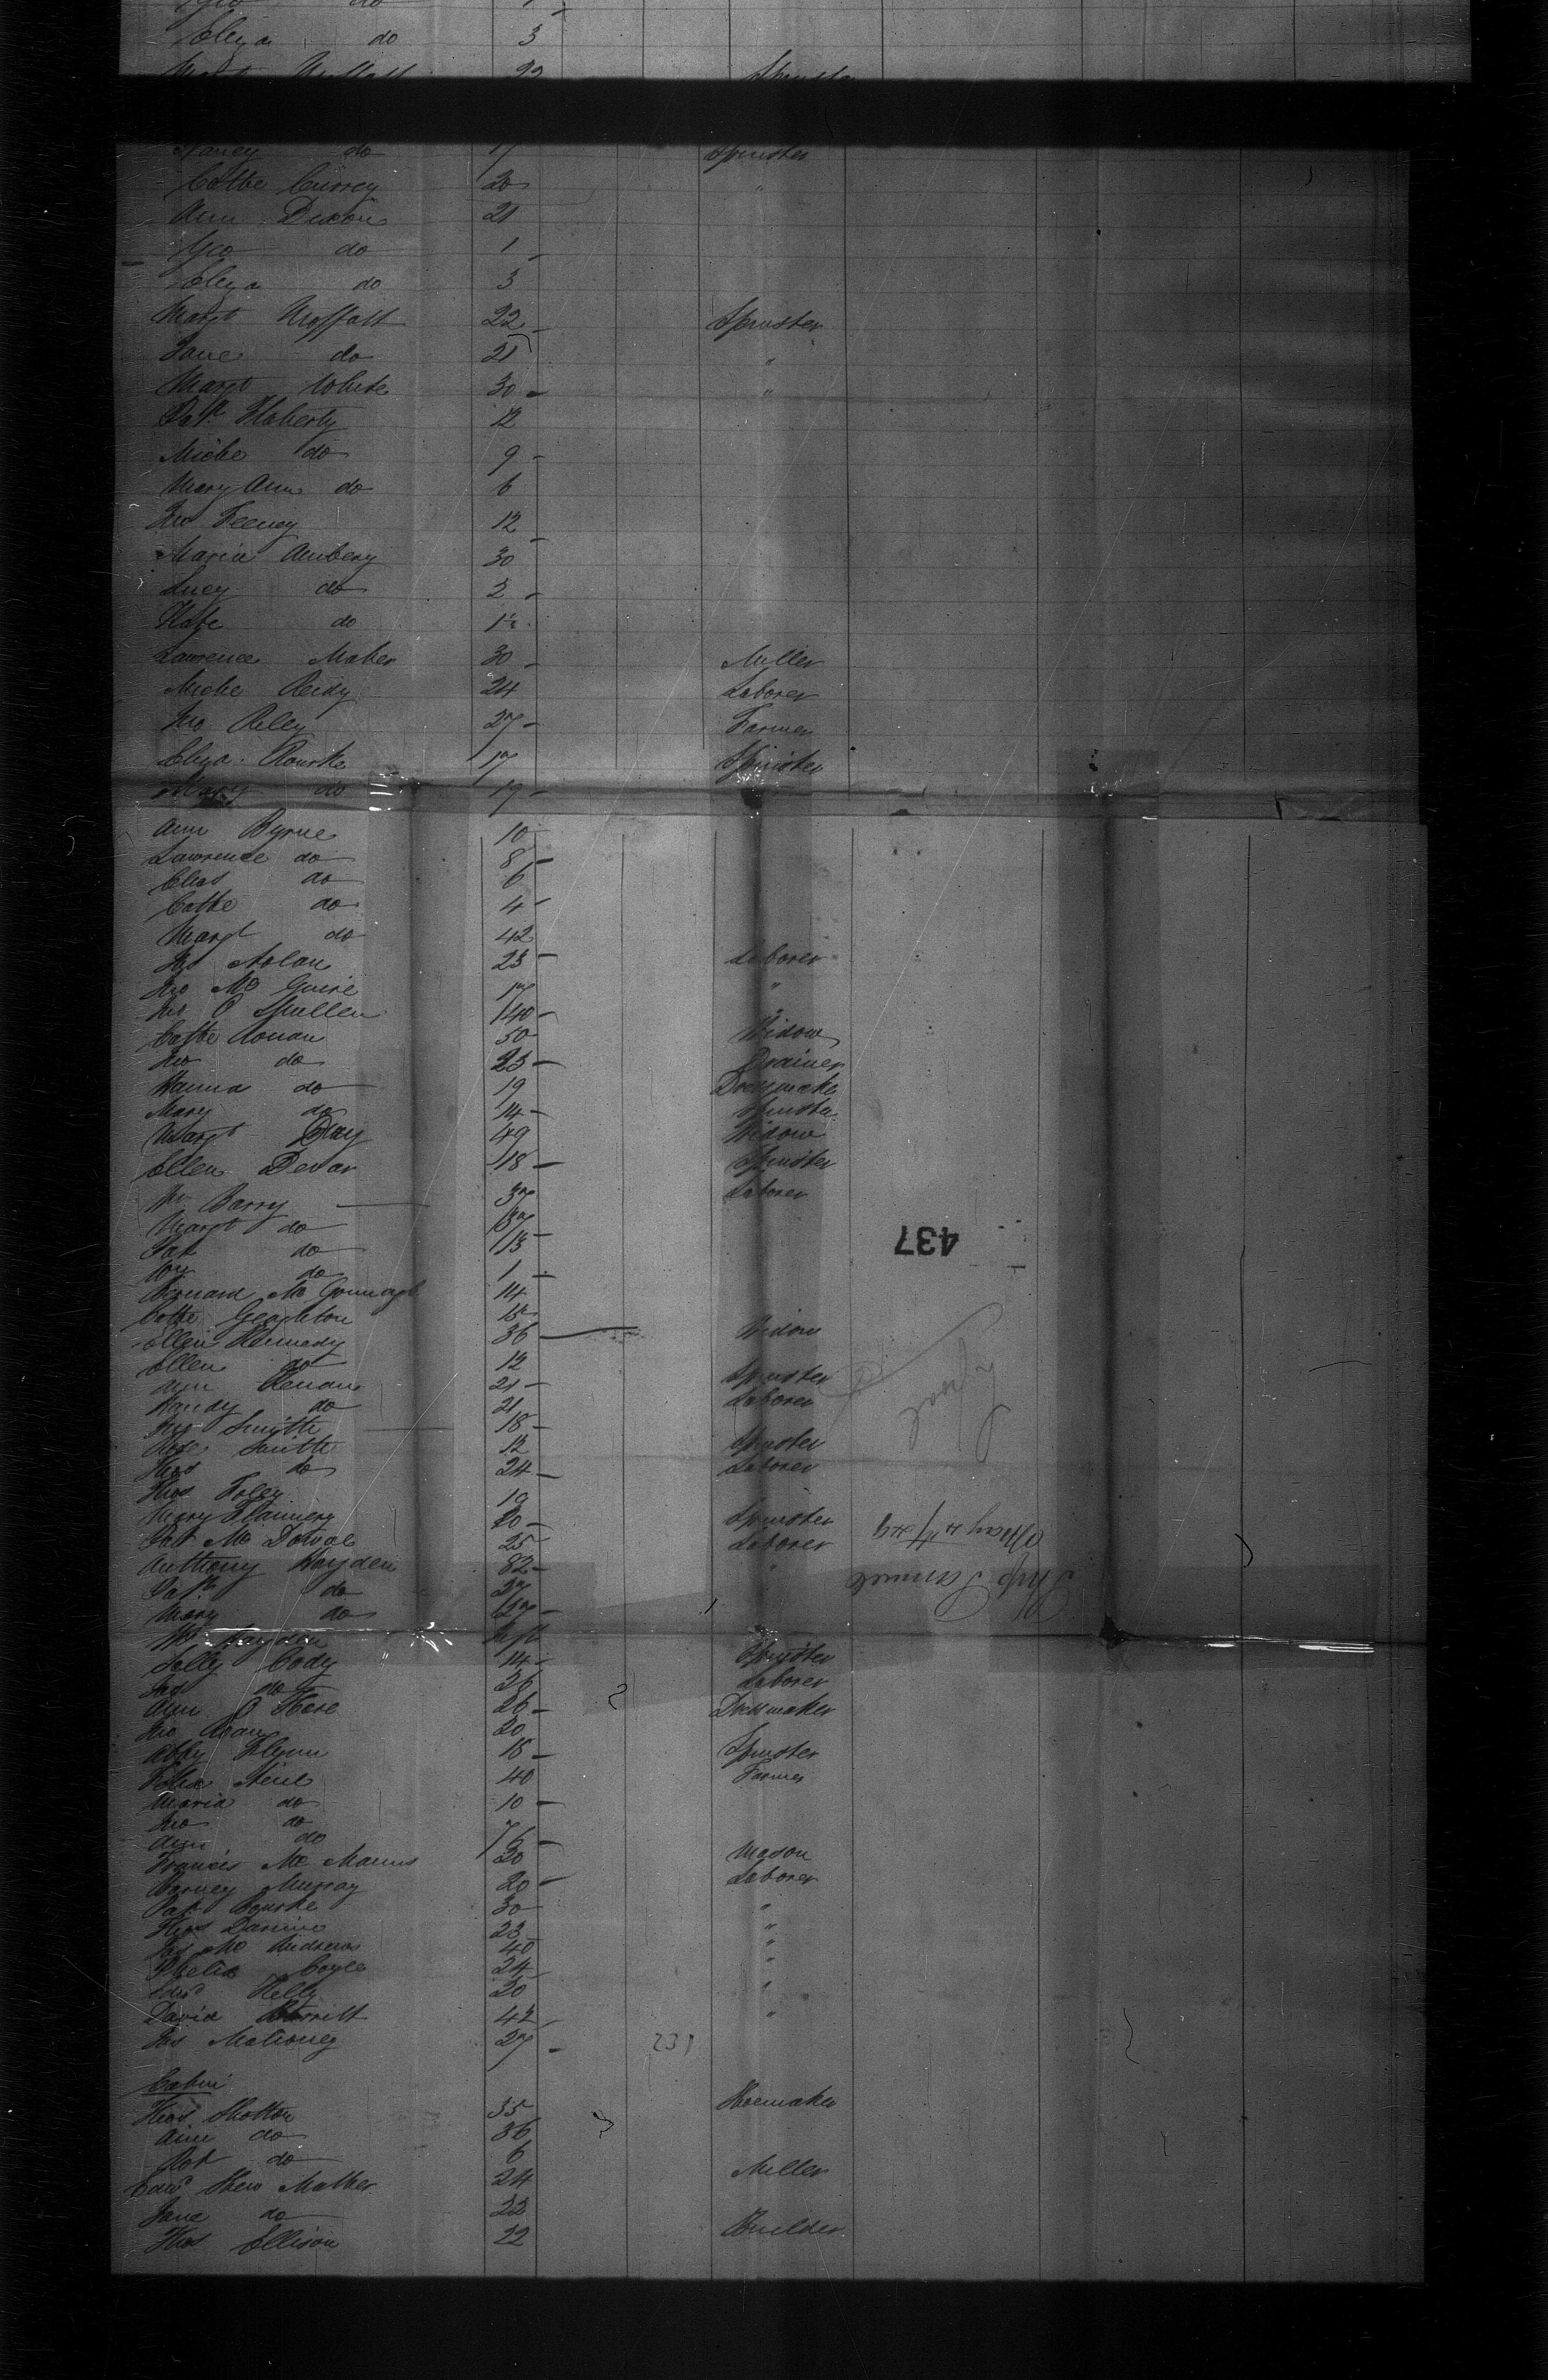 Geo do 1
Eliza do 3
Margt Moffatt 22 Spinster
Nancy do 17 Spinster
Cathe Currey 20 "
Ann Dixon 21
Geo do 1
Eliza do 3
Margt Moffatt 22 Spinster
Jane do 21 "
Margt White 30 "
Patk Flaherty 12
Miche do 9
Mary Ann do 6
Jno Feeney 12
Maria Anbery 30
Lucy do 2
Kate do
Lawrence Maher 30 Miller
Miche Reidy 24 Laborer
Jno Riley 27 Farmer
Eliza Rourke 17 Spinster
Mary do 17
Ann Byrne 10
Lawrence do 8
Chas do 6
Cathe do 4
Margt do 42
Jas Nolan 23 Laborer
Jno McGuire 17 "
Jas O Spullen 40 "
Cathe Ronan 50 Widow
Jno do 23 Drainer
Hanna do 19 Dressmaker
Mary do 14 Spinster
Margt Day 49 Widow
Ellen Devar 18 Spinster
Wm Barry 37 Laborer
Margt do 37
Pat do 13
Wm do 1
437
Bernard McGonnagl 14
Cathe Geaghton
Ellen Kennedy 36 Widow
Ellen do 12
Ann Kenan 21 Spinster
Handy do 21 Laborer
Jno Smith 18
Rose Smith 12 Spinster
Thos do 24 Laborer
Thos Foley 19
Mary Flannery 20 Spinster
Pat McDowal 25 Laborer
Anthony Hayden 82 "
Patk do 27
Mary do
Wm Hayden
Ship Samuel
May 4/49
Sally Cody 14 Spinster
Jas do 26 Laborer
Ann O Hare 26 Dressmaker
Jno Ryan 20
Abby Flynn 18 Spinster
Felix Neil 40 Farmer
Maria do 10
Jno do 7
Ann do 6
Francis McManus 30 Mason
Barney Murray 20 Laborer
Pat Rourke 30 "
Thos Dannine 23 "
Jas McAndrews 40 "
Phelix Coyle 24 "
Edwd Kelly 20 "
David Barritt 42 "
Jas Mahoney 27
231
Cabin
Thos Shotton 35 Shoemaker
Ann do 36
Rob do 6
Edwd Shew Mather 24 Miller
Jane do 22
Thos Ellison 22 Builder